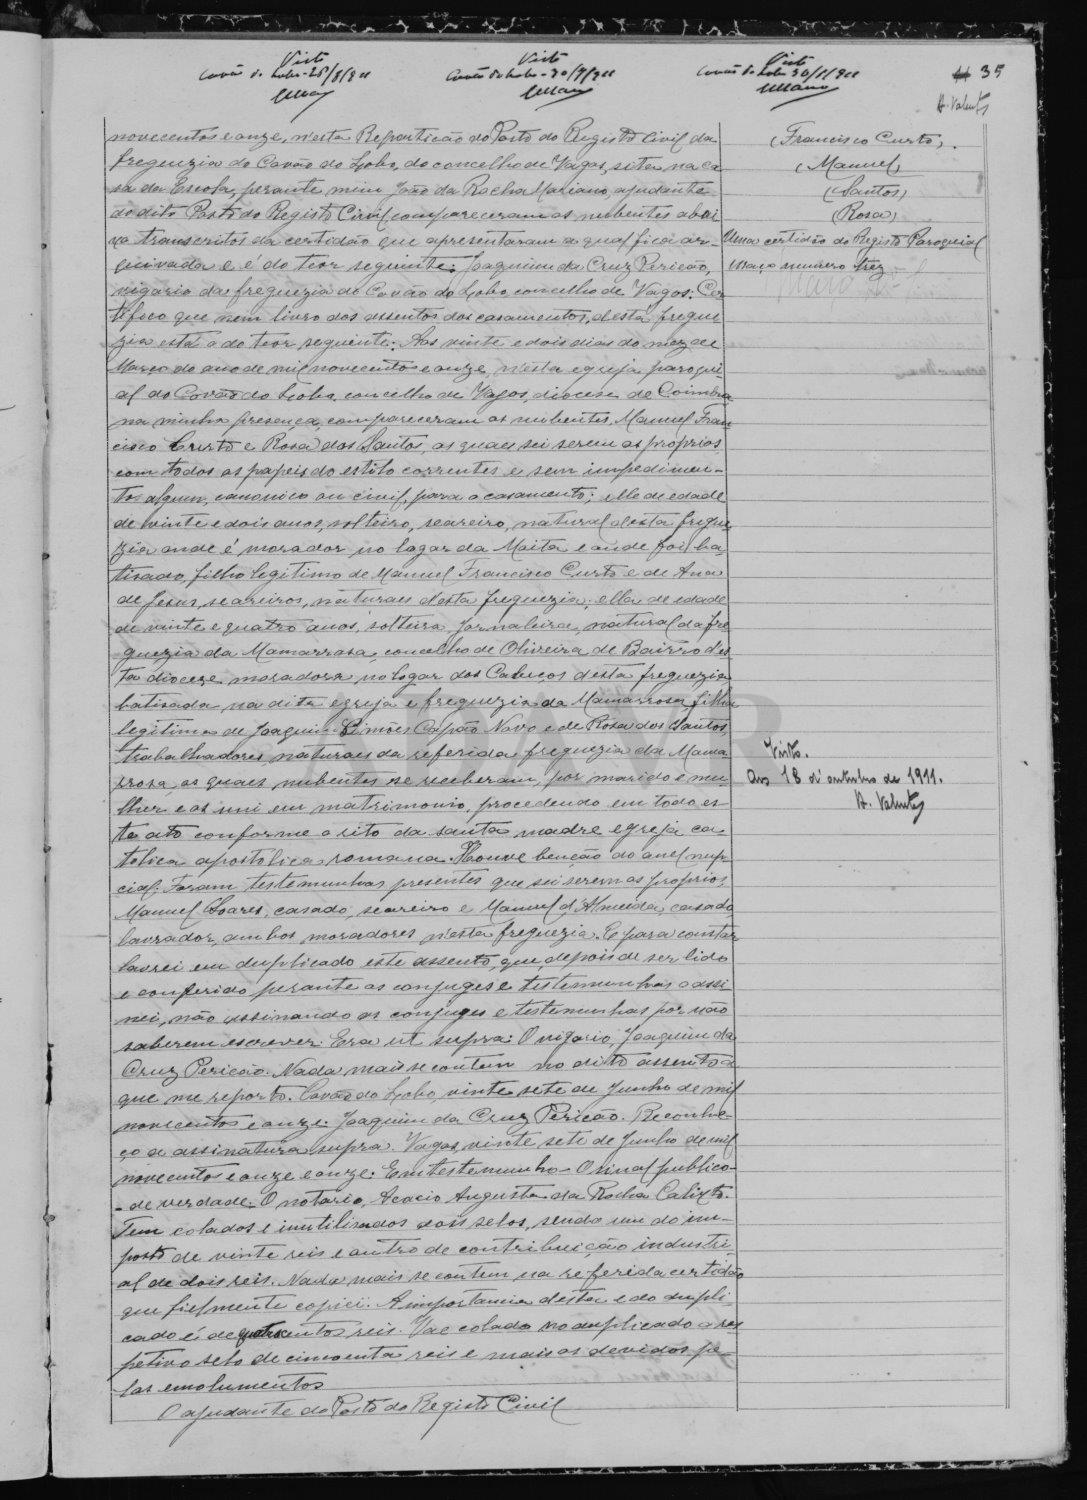 Visto
Covão do Lobo - 28/8/911
Visto
Covão do Lobo - 30/9/911
Visto
Covão do Lobo 30/1/911
35
A. Valente
novecentos e onze, n'esta Repartição do Posto do Registo Civil da
freguezia do Covão do Lobo, do concelho de Vagos, sita na ca-
sa da Escola, perante mim João da Rocha Mariano, ajudante
do dito Posto do Registo Civil compareceram os nubentes abai
xo transcritos da certidão que apresentaram a qual fica ar-
quivada e é do teor seguinte: Joaquim da Cruz Pericão,
vigario da freguezia do Covão do Lobo, concelho de Vagos: Cer
tifico que num livro dos assentos dos casamentos, desta fregue
zia está o do teor seguinte: Aos vinte e dois dias do mez de
Março do ano de mil novecentos e onze, n'esta egreja paroqui-
al do Covão do Lobo, concelho de Vagos, diocese de Coimbra
na minha presença, compareceram os nubentes, Manuel Fran
cisco Curto e Rosa dos Santos, os quaes sei serem os proprios,
com todos os papeis do estilo correntes e sem impedimen-
to algum, canonico ou civil, para o casamento; elle de edade
de vinte e dois anos, solteiro, seareiro, natural desta fregue
zia onde é morador no logar da Moita e onde foi ba-
tisado, filho legitimo de Manuel Francisco Curto e de Ana
de Jesus, seareiros, naturaes desta freguezia; ella de edade
de vinte e quatro anos, solteira, jornaleira, natural da fre
guezia da Mamarrosa, concelho de Oliveira de Bairro d'es
ta diocese moradora no logar dos Cabeços desta freguezia,
batisada na dita egreja e freguezia da Mamarrosa, filha
legitima de Joaquim Simões Capão Novo e de Rosa dos Santos
trabalhadores, naturaes da referida freguezia da Mama
rrosa, os quaes nubentes se receberam, por marido e mu-
lher e os uni em matrimonio, procedendo em todo es
te ato conforme o rito da santa madre egreja ca
tolica apostolica romana. Houve benção do anel nup-
cial. Foram testemunhas presentes que sei serem os proprios,
Manuel Soares, casado, seareiro e Manuel d'Almeida, casado
lavrador, ambos moradores n'esta freguezia. E para constar
lavrei em duplicado este assento, que, depois de ser lido
e conferido perante os conjuges e testemunhas o assi
nei, não assinando os conjuges e testemunhas por não
saberem escrever. Era ut supra: O vigario, Joaquim da
Cruz Pericão. Nada mais se contem no dito assento a
que me reporto. Covão do Lobo, vinte sete de Junho de mil
novecentos e onze. Joaquim da Cruz Pericão. Reconhe-
ço a assinatura supra. Vagos, vinte sete de Junho de mil
novecentos e onze e onze. Em testemunho - O sinal publico -
- de verdade. O notario, Acacio Augusto da Rocha Calixto.
Tem colados e inutilisados dois selos, sendo um do im-
posto de vinte reis e outro de contribuição industri-
al de dois reis. Nada mais se contem na referida certidão
que fielmente copiei. A importancia desta e do dupli-
cado é de quatrocentos reis. Vae colado no duplicado o res
petivo selo de cincoenta reis e mais os devidos pe-
los emolumentos
O ajudante do Posto do Registo Civil
(Francisco Curto).
(Manuel)
(Santos)
(Rosa)
Uma certidão do Registo Paroquial
Maço numero trez
Visto.
Aos 18 d'outubro de 1911.
A. Valente